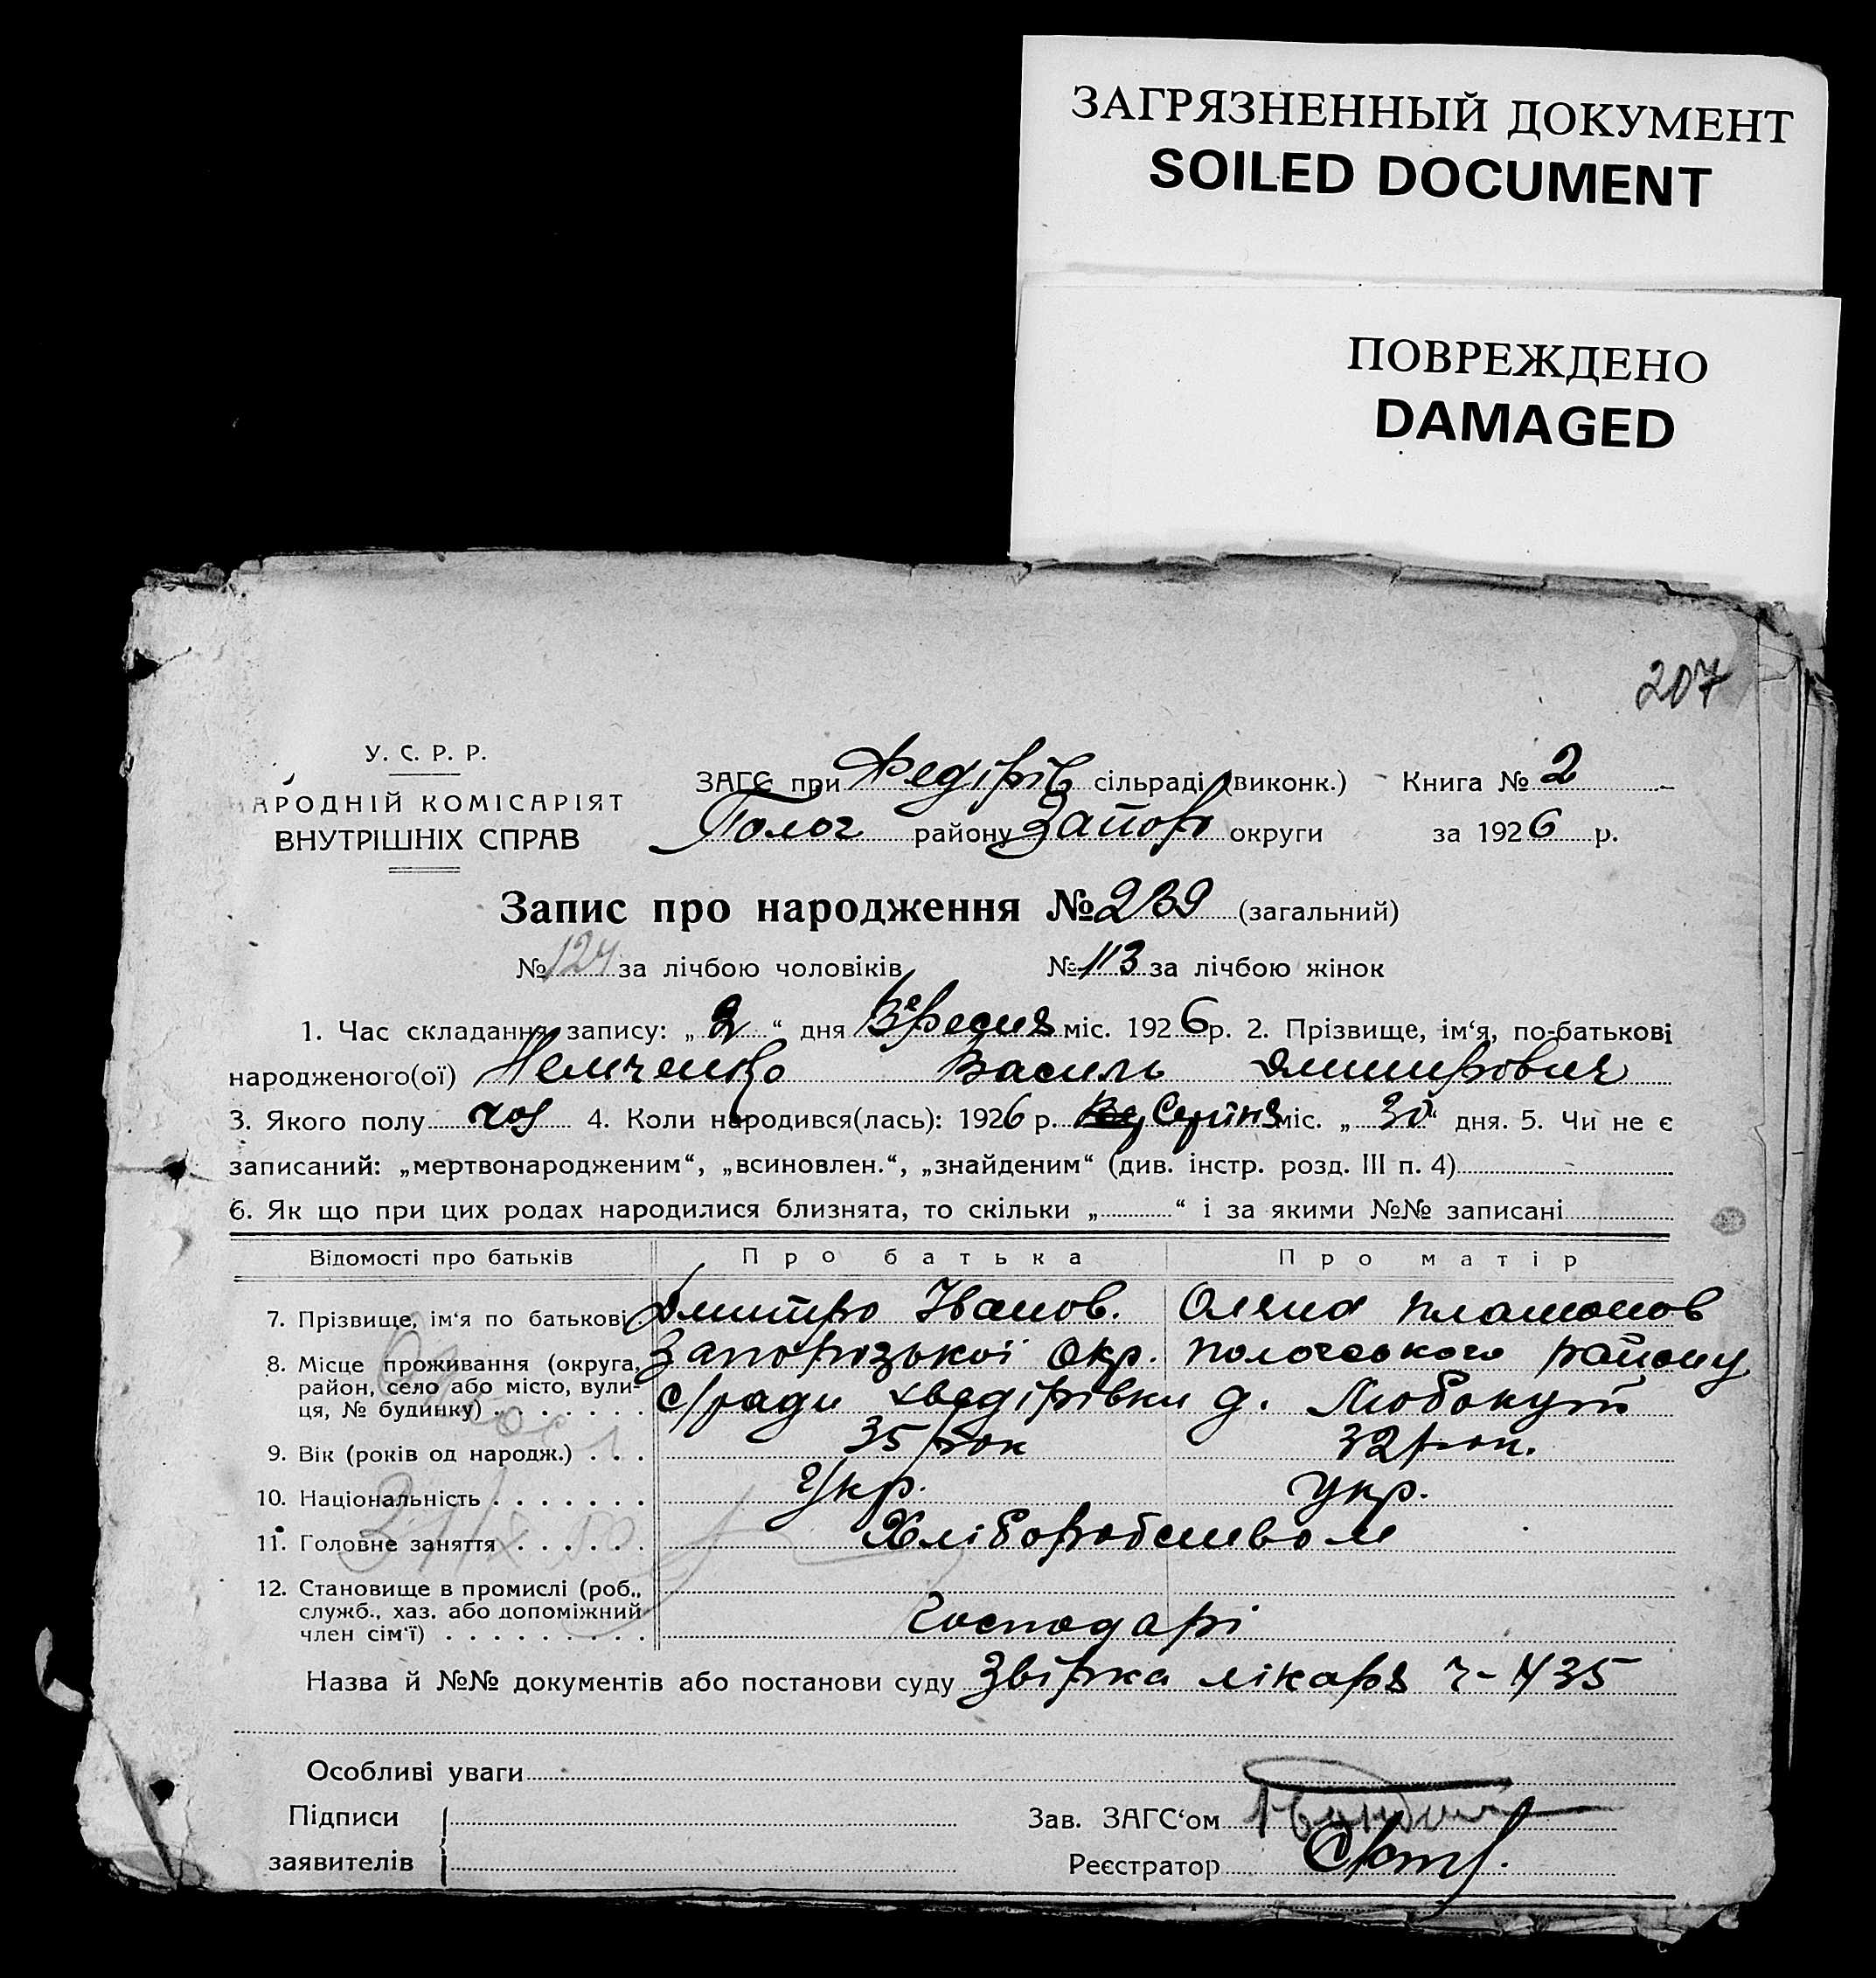 ЗАГРЯЗНЕННЫЙ ДОКУМЕНТ
SOILED DOCUMENT
ПОВРЕЖДЕНО
DAMAGED
207
У. С. Р. Р.
АРОДНІЙ КОМІСАРІЯТ
ВНУТРІШНІХ СПРАВ
ЗАГС при Федірів сільраді (виконк.) Книга № 2
Полог району Запор округи за 1926 р.
Запис про народження № 239 (загальний)
№ 124 за лічбою чоловіків № 113 за лічбою жінок
1. Час складання запису: „ 2 “ дня Вересня міс. 1926 р. 2. Прізвище, ім‘я, по-батькові
народженого(ої) Немченко Василь Дмитрович
3. Якого полу чол 4. Коли народився(лась): 1926 р. Серпня міс. „ 30 “ дня. 5. Чи не є
записаний: „мертвонародженим“, „всиновлен.“, „знайденим“ (див. інстр. розд. III п. 4)
6. Як що при цих родах народилися близнята, то скільки „ “ і за якими №№ записані
Відомості про батьків Про батька Про матір
7. Прізвище, ім‘я по батькові Дмитро Іванов. Олена Платонов
8. Місце проживання (округа, Запорізької Окр. Пологського району
район, село або місто, вули- с/ради Хведірівки д. Любокут
ця, № будинку)
9. Вік (років од народж.) 35 рок 32 рок.
10. Національність Укр. Укр.
11. Головне заняття Хліборобством
12. Становище в промислі (роб.,
служб., хаз. або допоміжний Господарі
член сім‘ї)
Назва й №№ документів або постанови суду Звірка лікаря ч- 435
Особливі уваги
Підписи
заявителів
Зав. ЗАГС‘ом
Реєстратор